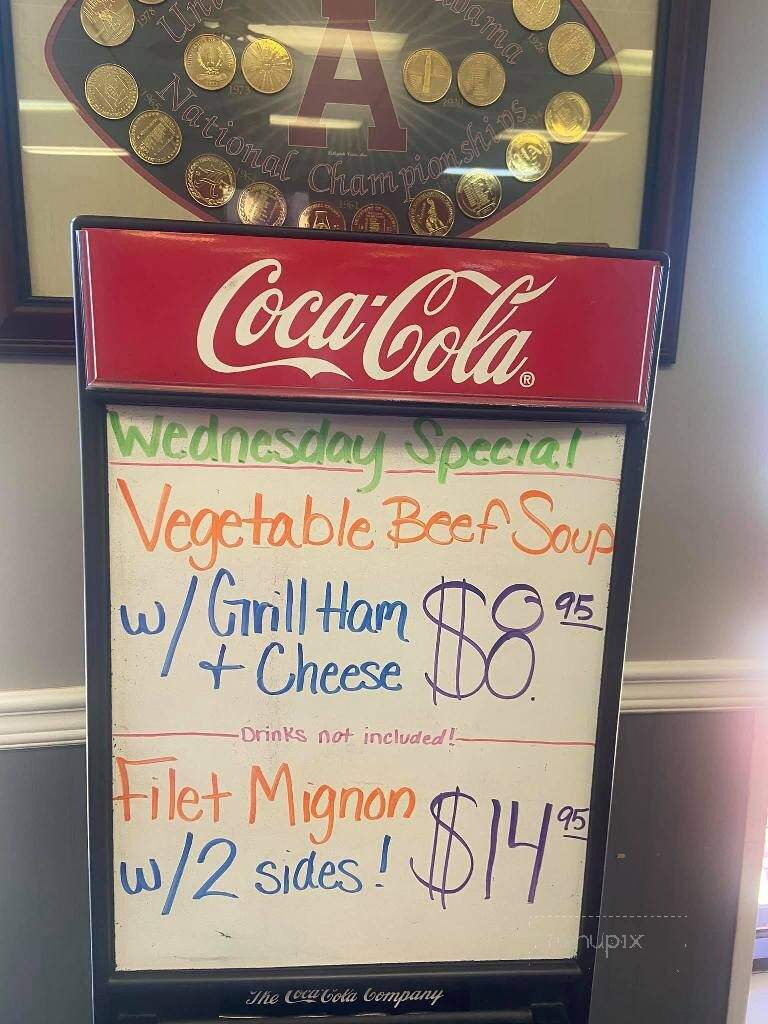 Alabama
1973
1930
1926
1965
National Championships
1961
Coca-Cola®
Wednesday Special
Vegetable Beef Soup
w/ Grill Ham
+ Cheese $8.95
Drinks not included!
Filet Mignon
w/2 sides! $14 95
The Coca-Cola Company